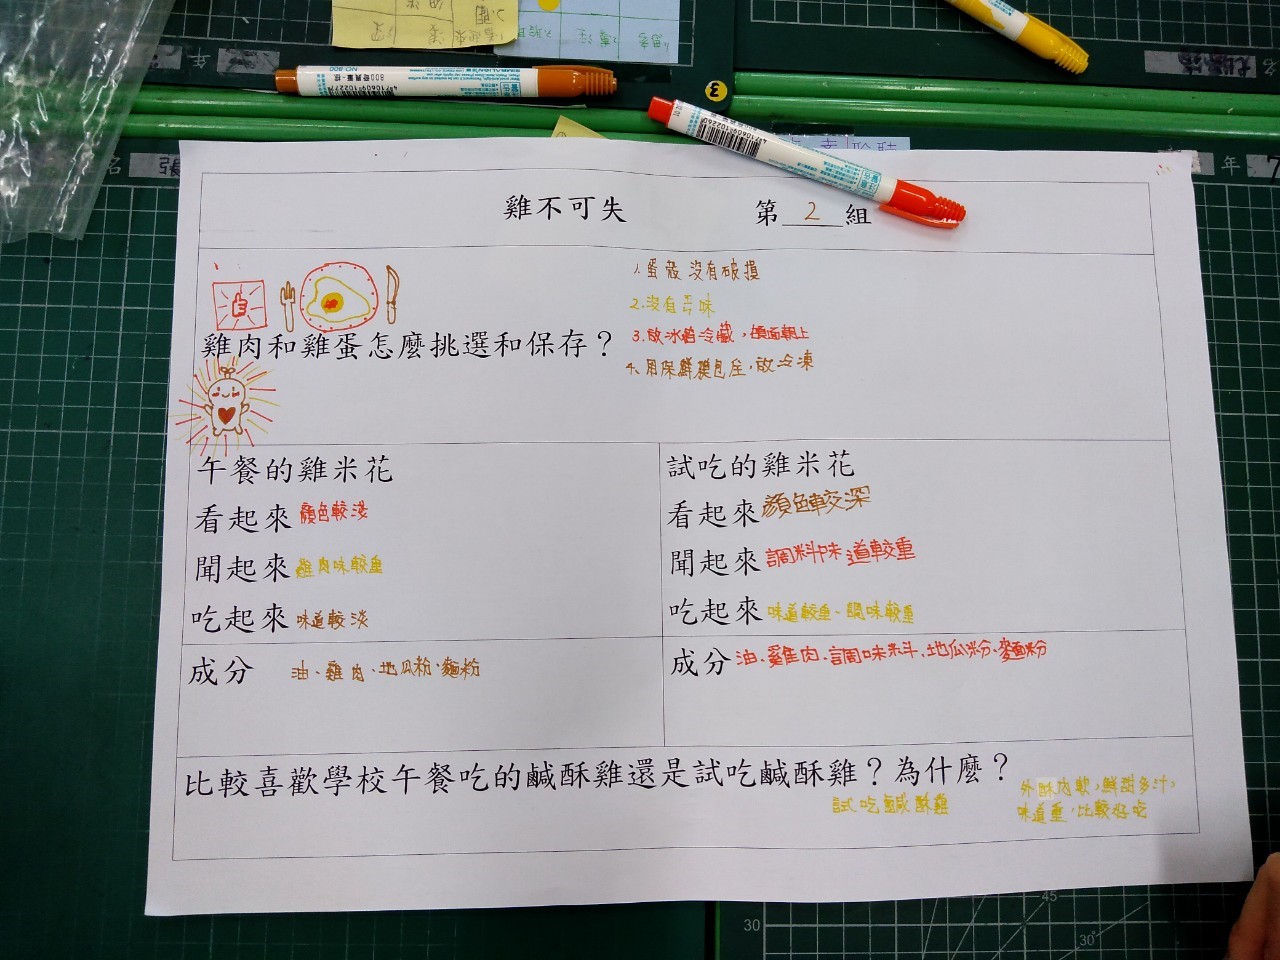 NO.800
SIMBALION
4710609102277
4710609102260
3
名
張
年
7
雞不可失 第 2 組
1. 蛋殼沒有破損
2. 沒有异味
3. 放冰箱冷藏，鈍面朝上
4. 用保鮮膜包全，放冷凍
雞肉和雞蛋怎麼挑選和保存？
午餐的雞米花
看起來 顏色較淺
聞起來 雞肉味較重
吃起來 味道較淡
成分 油、雞肉、地瓜粉、麵粉
試吃的雞米花
看起來 顏色較深
聞起來 調料味道較重
吃起來 味道較重、調味較重
成分 油、雞肉、調味料、地瓜粉、麵粉
比較喜歡學校午餐吃的鹹酥雞還是試吃鹹酥雞？為什麼？
試吃鹹酥雞
外酥內軟，鮮甜多汁，
味道重，比較好吃
30
45
30°